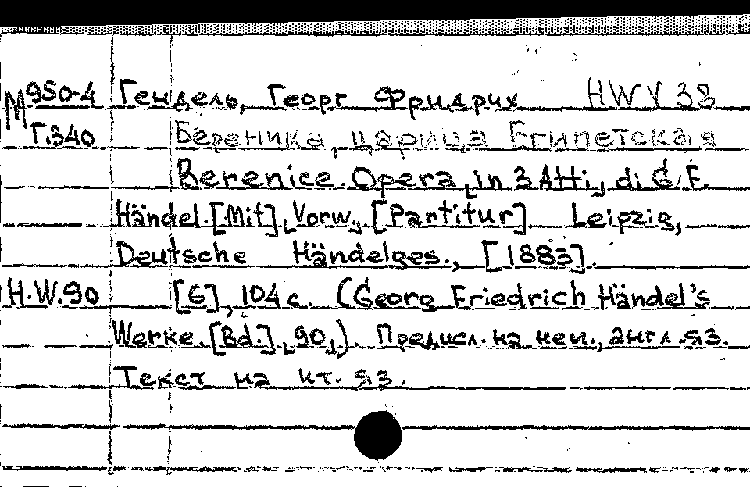 М 950-4 Гендель, Георг Фридрих HWV 38
Г.340 Береника, царица Египетская
Berenice. Opera, in 3 Atti, di G. F.
Händel. [Mit] Vorw. [Partitur] Leipzig,
Deutsche Händelges., [1883].
H.W.90 [6], 104 с. (Georg Friedrich Händel's
Werke. [Bd.] 90,). Предисл. на нем., англ. яз.
Текст на ит. яз.